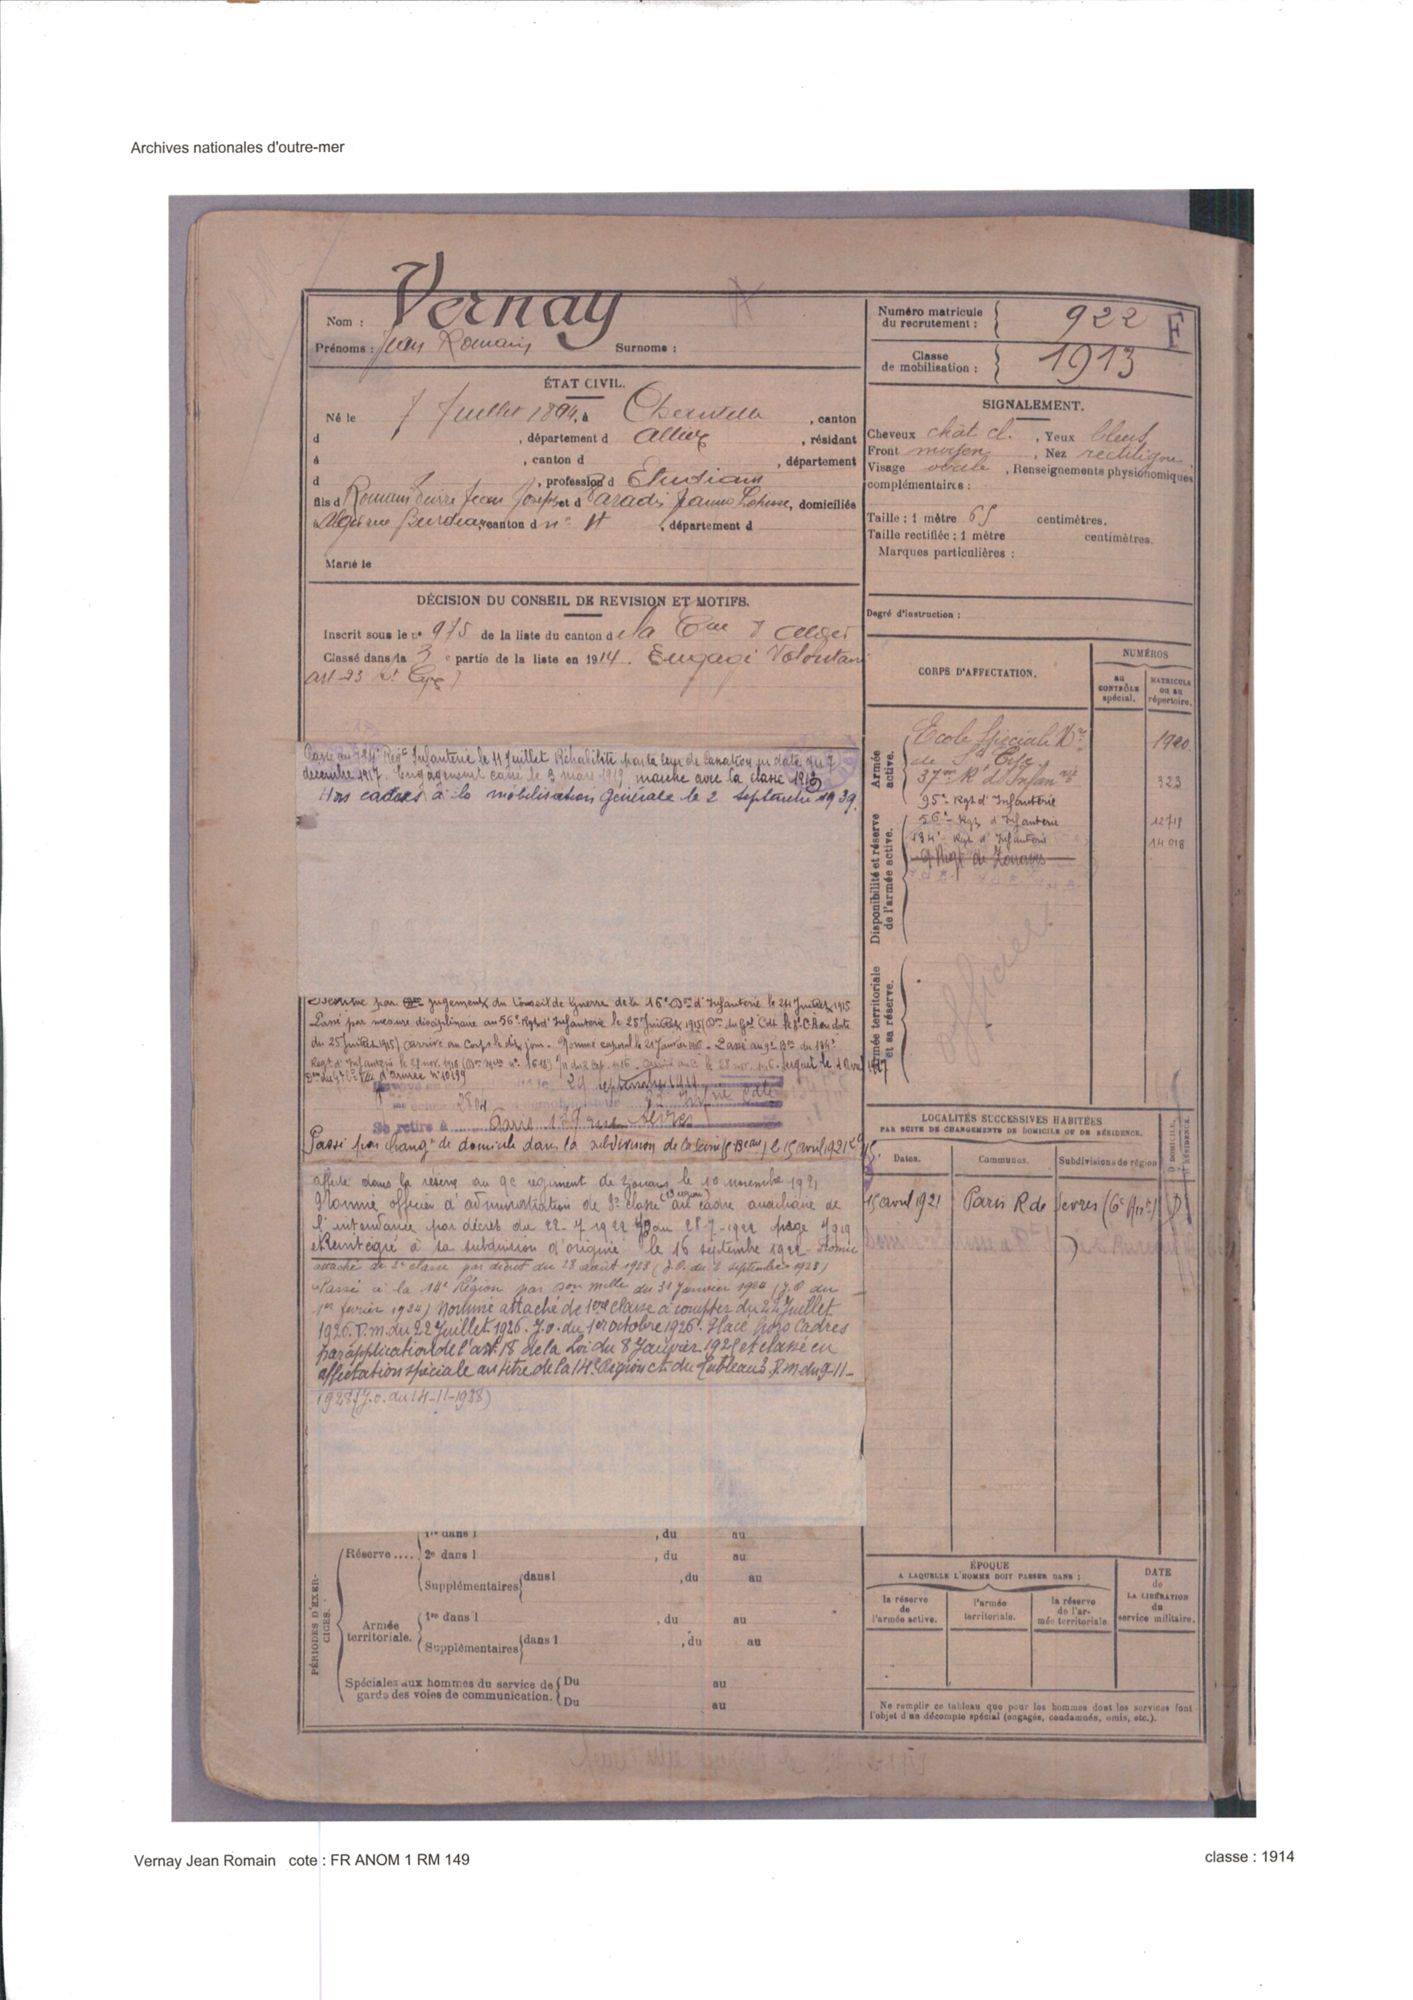 Archives nationales d'outre-mer
Nom : Vernay
Prénoms : Jean Romain Surnoms :
Numéro matricule du recrutement : 922 F
Classe de mobilisation : 1913
ÉTAT CIVIL.
Né le 7 Juillet 1894, à Chantelle , canton
d , département d Allier , résidant
à , canton d , département
d , profession d Etudiant
fils d Romain Pierre Jean Joseph et d Jeanne , domiciliés
à Algérie canton d , département d
Marié le
SIGNALEMENT.
Cheveux chât cl. , Yeux bleus
Front moyen , Nez rectiligne
Visage ovale , Renseignements physionomiques
complémentaires :
Taille : 1 mètre 65 centimètres.
Taille rectifiée : 1 mètre centimètres.
Marques particulières :
Degré d'instruction :
DÉCISION DU CONSEIL DE REVISION ET MOTIFS.
Inscrit sous le n° 975 de la liste du canton d la d'Alger
Classé dans la 3 e partie de la liste en 1914. Engagé Volontaire
art 23 St Cyr
CORPS D'AFFECTATION.
NUMÉROS
au CONTRÔLE spécial.
MATRICULE ou au répertoire.
Armée active.
Ecole Spéciale Mre 1920
de St Cyr
37me Rt d'Infanrie 323
95e Rgt d'Infanterie
Disponibilité et réserve de l'armée active.
56e Rgt d'Infanterie 12718
134e Rgt d'Infanterie 14018
9 Regt de Zouaves
Armée territoriale et sa réserve.
Officier
Passé au 134e Regt Infanterie le 11 Juillet Réhabilité par la Cour de Cassation en date du 7
décembre 1917. Engagement cassé le 3 mars 1919, marche avec la classe 1913
Hors cadres à la mobilisation Générale le 2 Septembre 1939.
par jugement du Conseil de Guerre de la 16e Don d'Infanterie le 24 Juillet 1915
Passé par mesure disciplinaire au 56e Rgt d'Infanterie le 25 Juillet 1915
du 25 Juillet 1915) arrivé au Corps le dit jour. Nommé caporal le 21 Janvier 1916. Passé au 134e
Regt d'Infanterie le 28 nov. 1916
d'Armée N° 10199
29 septembre 1919
Se retire à Paris 179 rue Sèvres
Passé par changt de domicile dans la subdivision de la Seine le 15 avril 1921
affecté dans la réserve au 9e régiment de Zouaves le 10 novembre 1921
Nommé officier d'administration de 3e classe au cadre auxiliaire de
l'intendance par décret du 22-7-1922 JO du 28-7-1922 page 7919
Réintégré à sa subdivision d'origine le 16 septembre 1922
attaché de 2e classe par décret du 28 août 1928 (J.O. du 2 septembre 1928)
Passé à la 14e Région par don mille du 31 Janvier 1924 (J.O du
1er février 1924) Nommé attaché de 1ère classe à compter du 22 Juillet
1926. D.M. du 22 Juillet 1926. J.O. du 1er Octobre 1926. Placé hors Cadres
par application de l'art 18 de la Loi du 8 Janvier 1925 et classé en
affectation spéciale au titre de la 14e Région et du Tableau 3 D.M. du 9-11-
1928 (J.O. du 14-11-1928)
LOCALITÉS SUCCESSIVES HABITÉES
PAR SUITE DE CHANGEMENTS DE DOMICILE OU DE RÉSIDENCE.
Dates. Communes. Subdivisions de région D. DOMICILE, R. RÉSIDENCE.
15 avril 1921 Paris R de Sèvres (6e Arrt) D
PÉRIODES D'EXERCICES.
1re dans l , du au
Réserve .... 2e dans l , du au
Supplémentaires dans l , du au
Armée territoriale. 1re dans l , du au
Supplémentaires dans l , du au
Spéciales aux hommes du service de garde des voies de communication. Du au
Du au
ÉPOQUE
A LAQUELLE L'HOMME DOIT PASSER DANS :
la réserve de l'armée active.
l'armée territoriale.
la réserve de l'armée territoriale.
DATE de LA LIBÉRATION du service militaire.
Ne remplir ce tableau que pour les hommes dont les services font
l'objet d'un décompte spécial (engagés, condamnés, omis, etc.).
Vernay Jean Romain cote : FR ANOM 1 RM 149
classe : 1914